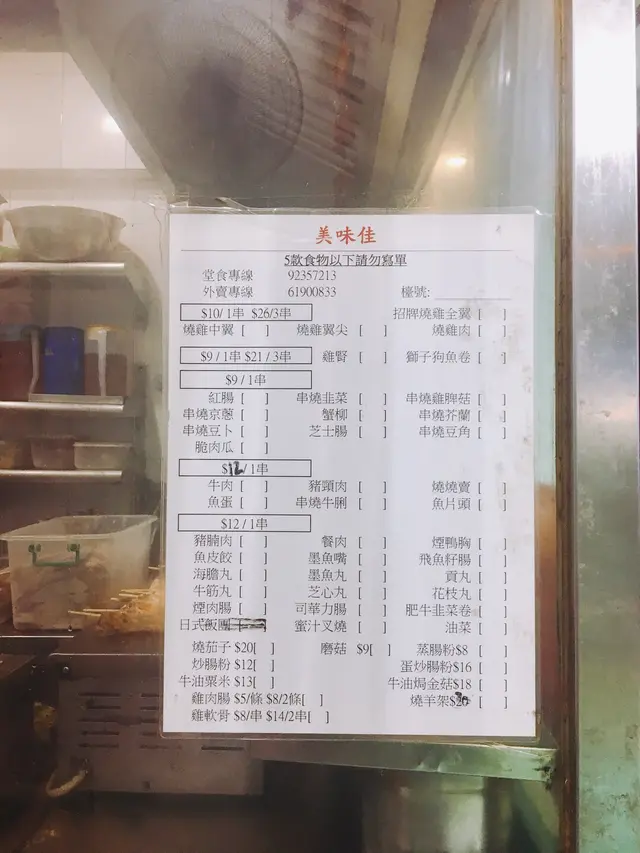 美味佳
5款食物以下請勿寫單
堂食專線 92357213
外賣專線 61900833 檯號:
$10/1串 $26/3串 招牌燒雞全翼 [ ]
燒雞中翼 [ ] 燒雞翼尖 [ ] 燒雞肉 [ ]
$9 / 1串 $21 / 3串 雞腎 [ ] 獅子狗魚卷 [ ]
$9 / 1串
紅腸 [ ] 串燒韭菜 [ ] 串燒雞脾菇 [ ]
串燒京蔥 [ ] 蟹柳 [ ] 串燒芥蘭 [ ]
串燒豆卜 [ ] 芝士腸 [ ] 串燒豆角 [ ]
脆肉瓜 [ ]
$12/1串
牛肉 [ ] 豬頸肉 [ ] 燒燒賣 [ ]
魚蛋 [ ] 串燒牛脷 [ ] 魚片頭 [ ]
$12 / 1串
豬腩肉 [ ] 餐肉 [ ] 煙鴨胸 [ ]
魚皮餃 [ ] 墨魚嘴 [ ] 飛魚籽腸 [ ]
海膽丸 [ ] 墨魚丸 [ ] 貢丸 [ ]
牛筋丸 [ ] 芝心丸 [ ] 花枝丸 [ ]
煙肉腸 [ ] 司華力腸 [ ] 肥牛韭菜卷 [ ]
日式飯團 蜜汁叉燒 [ ] 油菜 [ ]
燒茄子 $20[ ] 磨菇 $9[ ] 蒸腸粉$8 [ ]
炒腸粉 $12[ ] 蛋炒腸粉$16 [ ]
牛油粟米 $13[ ] 牛油焗金菇$18 [ ]
雞肉腸 $5/條 $8/2條[ ] 燒羊架 [ ]
雞軟骨 $8/串 $14/2串[ ]